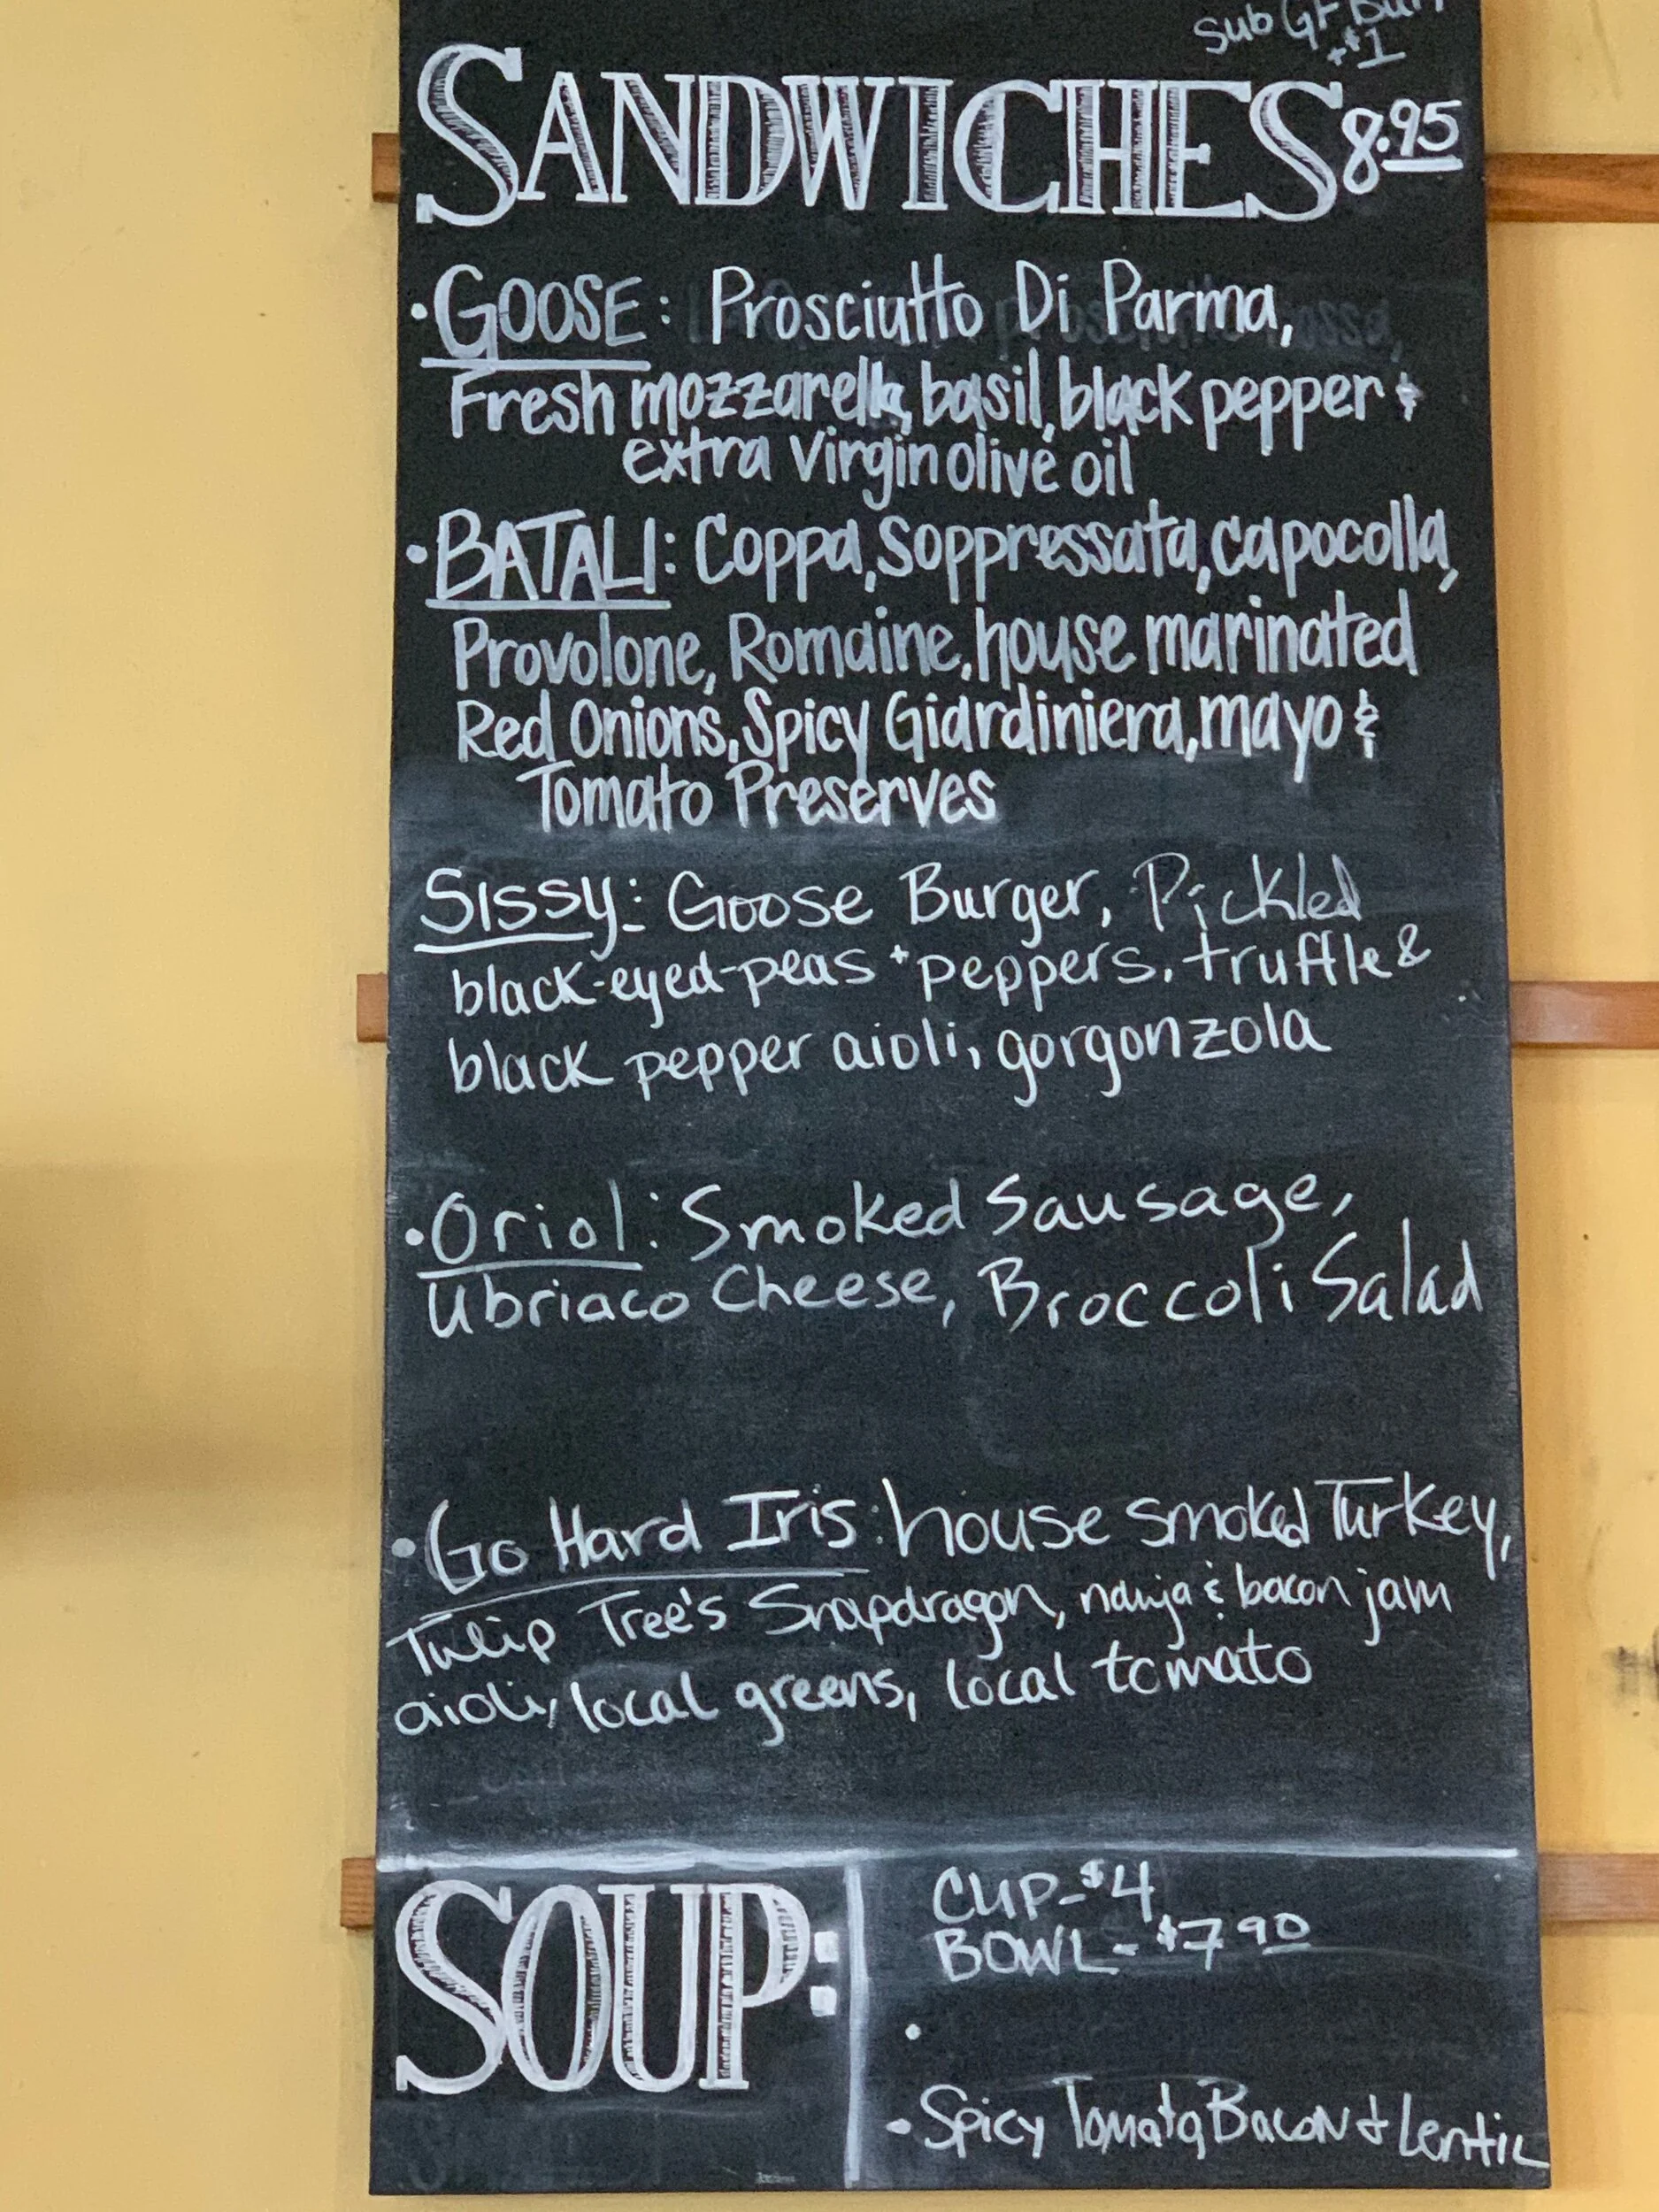 Sub GF Bun
+$1
SANDWICHES 8.95
• GOOSE: Prosciutto Di Parma,
Fresh mozzarella, basil, black pepper &
extra virgin olive oil
• BATALI: Coppa, Soppressata, capocolla,
Provolone, Romaine, house marinated
Red Onions, Spicy Giardiniera, mayo &
Tomato Preserves
Sissy: Goose Burger, Pickled
black-eyed-peas + peppers, truffle &
black pepper aioli, gorgonzola
• Oriol: Smoked Sausage,
Ubriaco Cheese, Broccoli Salad
• Go Hard Iris: house smoked Turkey,
Tulip Tree's Snapdragon, nduja & bacon jam
aioli, local greens, local tomato
SOUP:
CUP-$4
BOWL-$7.90
•
- Spicy Tomato, Bacon & Lentil